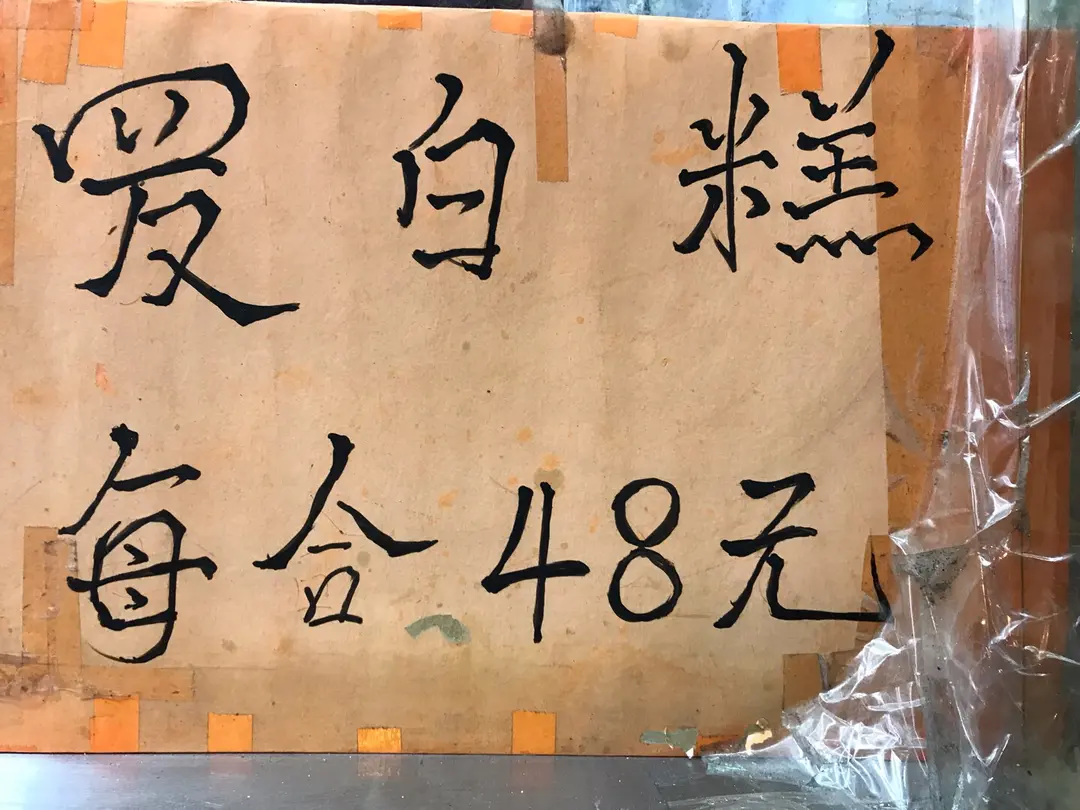 爱白糕
每合48元